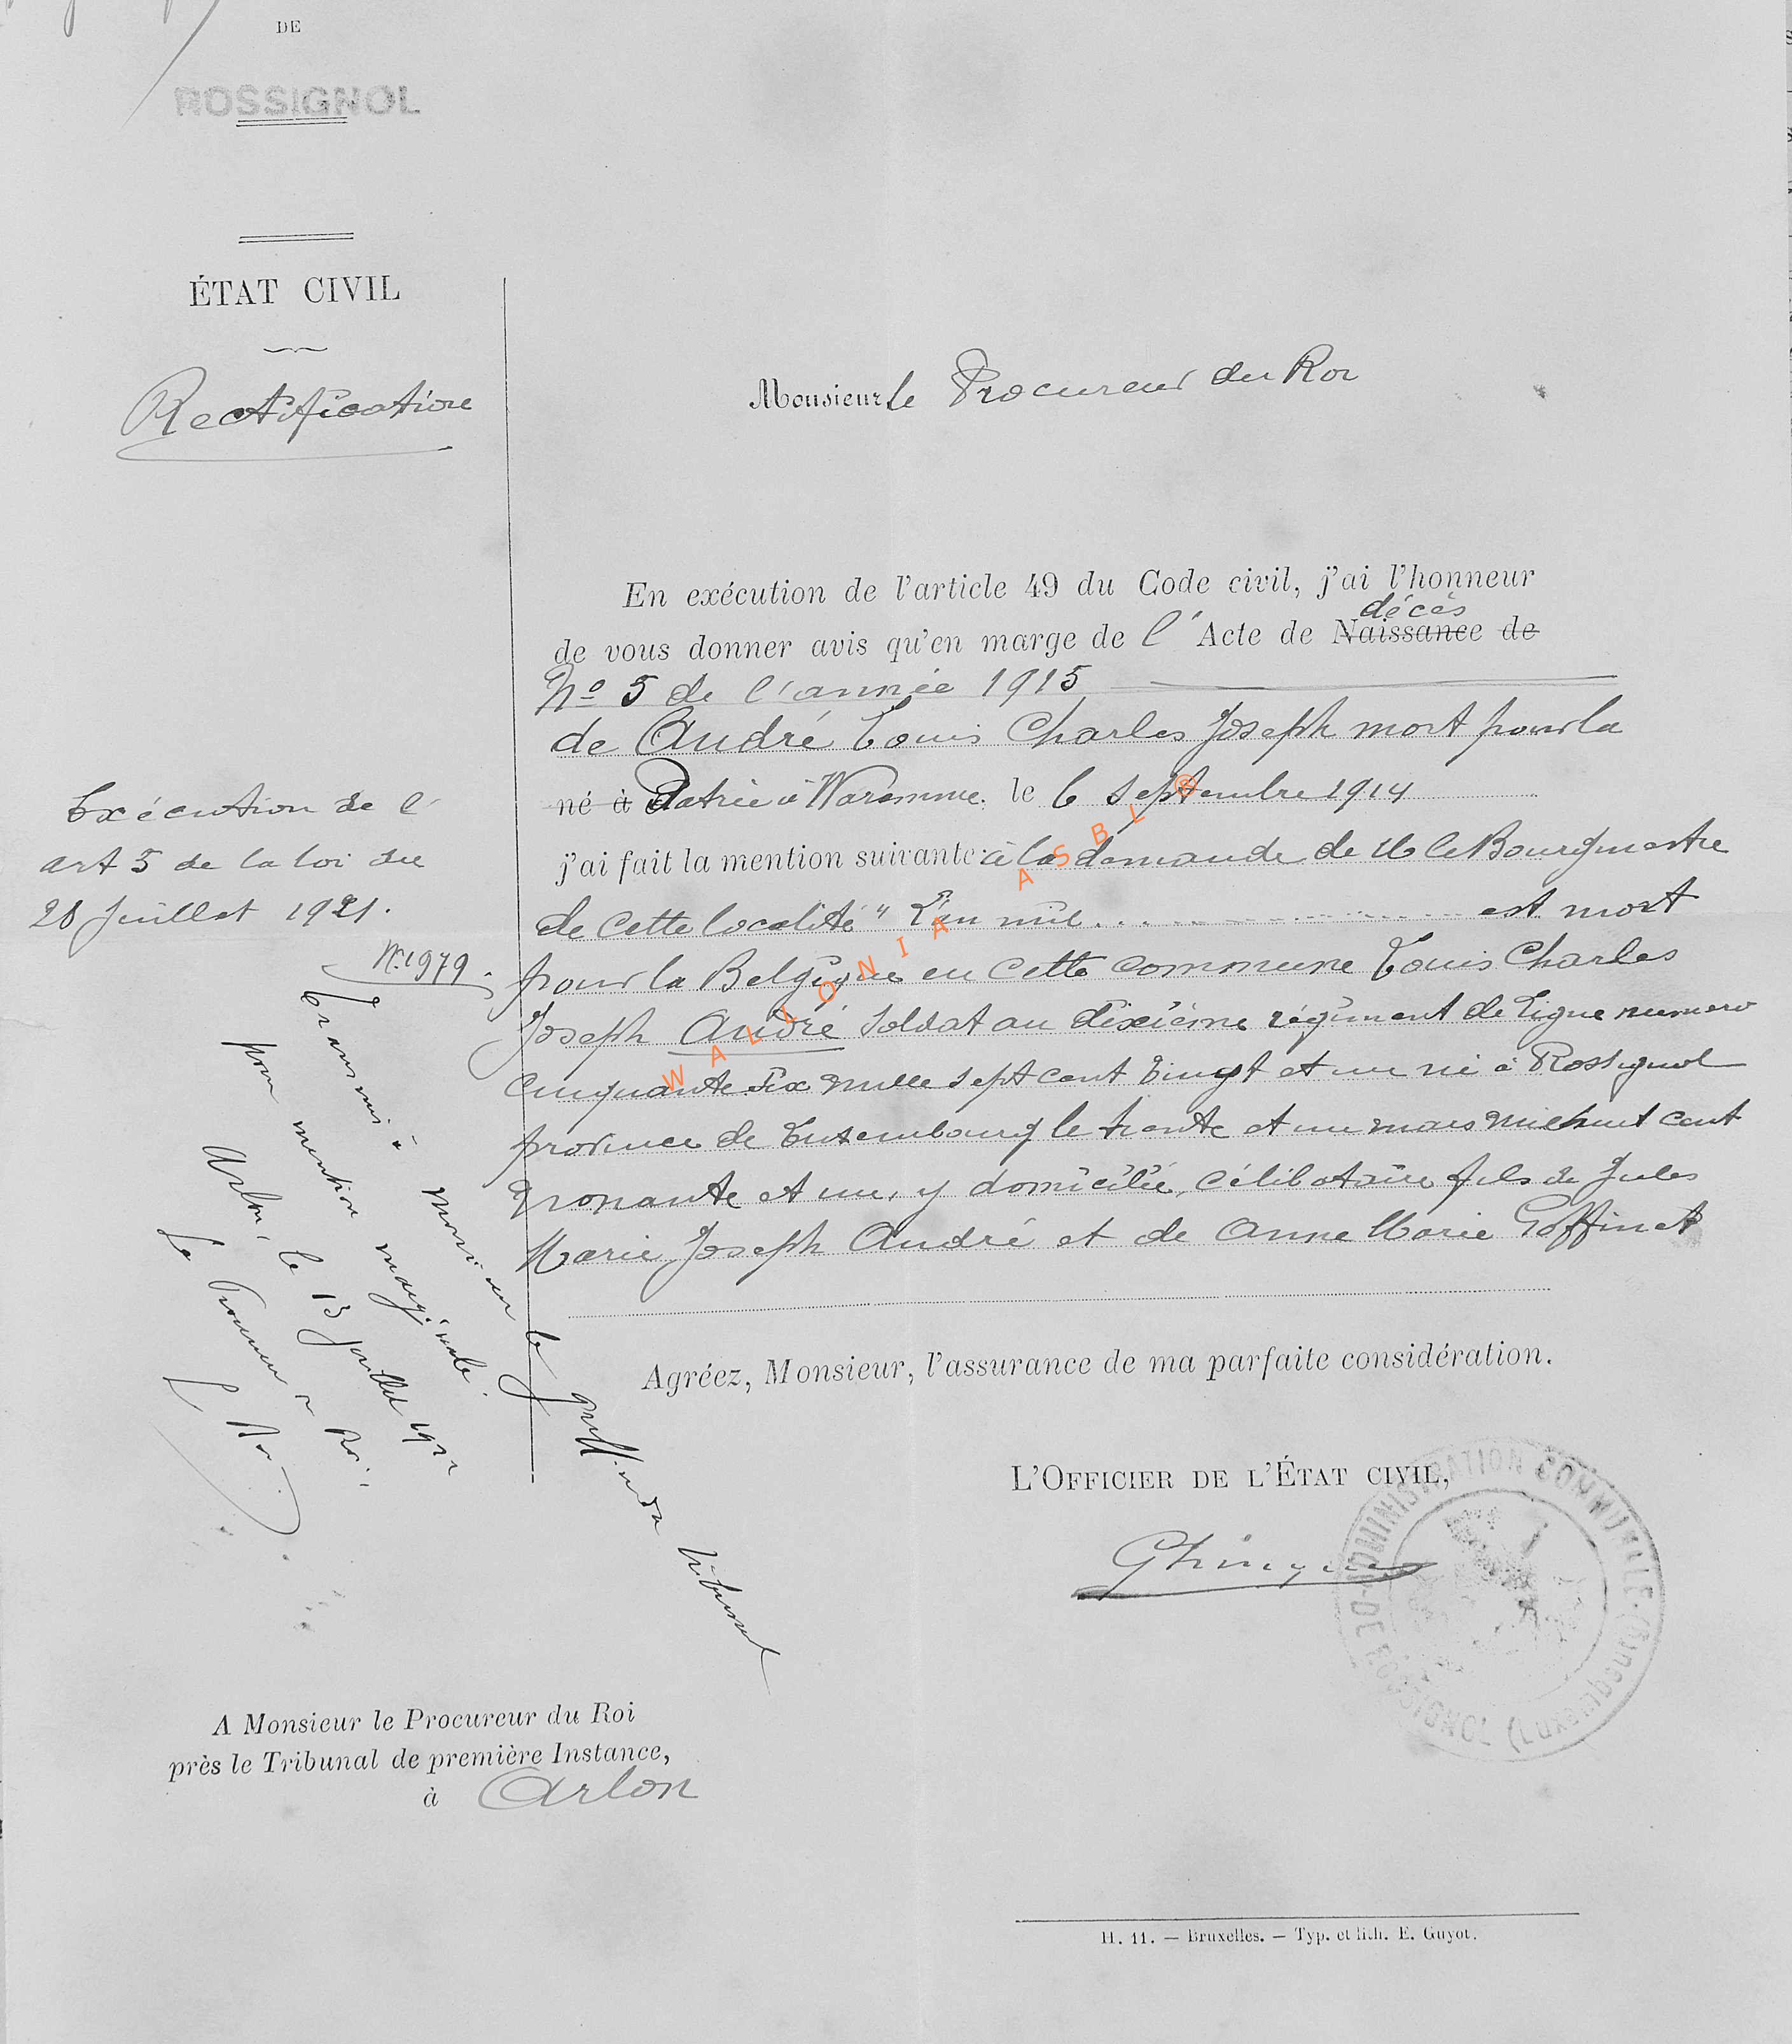 DE
ROSSIGNOL
ÉTAT CIVIL
Rectification
Monsieur le Procureur du Roi
En exécution de l'article 49 du Code civil, j'ai l'honneur
décès
de vous donner avis qu'en marge de l' Acte de Naissance de
No 5 de l'année 1915
de André Louis Charles Joseph mort pour la
né à Patrie à Waremme. le 6 septembre 1914
j'ai fait la mention suivante: à la demande de M le Bourgmestre
de cette localité " L'an mil ... est mort
pour la Belgique en cette commune Louis Charles
Joseph André soldat au dixième régiment de Ligne numero
cinquante six mille sept cent vingt et un né à Rossignol
province de Luxembourg le trente et un mars mil huit cent
nonante et un, y domicilié, célibataire fils de Jules
Marie Joseph André et de Anne Marie Goffinet
Exécution de l'
art 5 de la loi du
28 Juillet 1921.
N. 1979
Transmis à Monsieur le greffier du tribunal
pour mention marginale.
Arlon, le 13 juillet 1922
Le Procureur du Roi
WALLONIA ASBL ®
Agréez, Monsieur, l'assurance de ma parfaite considération.
L'OFFICIER DE L'ÉTAT CIVIL,
ADMINISTRATION COMMUNALE DE ROSSIGNOL (Luxembourg)
A Monsieur le Procureur du Roi
près le Tribunal de première Instance,
à Arlon
H. 11. — Bruxelles. — Typ. et lith. E. Guyot.